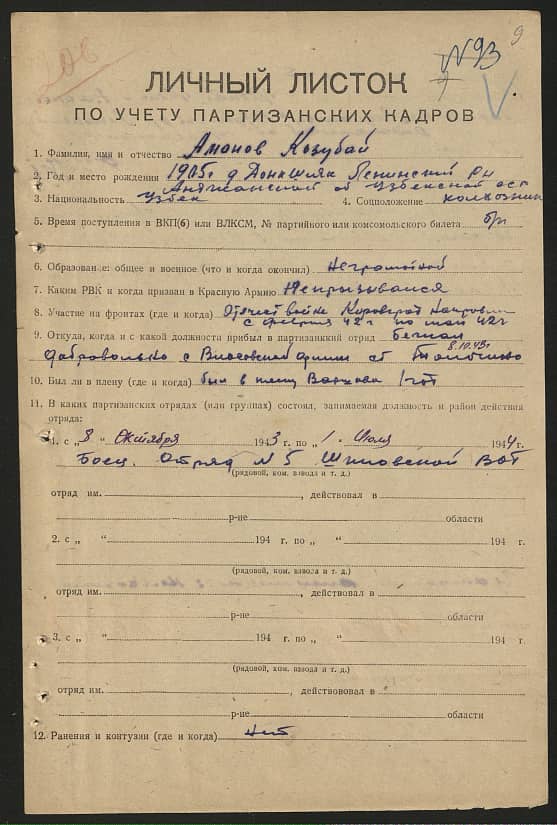 206
N 93
9
ЛИЧНЫЙ ЛИСТОК
ПО УЧЕТУ ПАРТИЗАНСКИХ КАДРОВ
1. Фамилия, имя и отчество Аманов Козубай
2. Год и место рождения 1905г д Ленинский рн
Андижанской об Узбекской сср
3. Национальность Узбек 4. Соцположение колхозник
5. Время поступления в ВКП(б) или ВЛКСМ, № партийного или комсомольского билета б/п
6. Образование: общее и военное (что и когда окончил) Неграмотной
7. Каким РВК и когда призван в Красную Армию Непризывался
8. Участие на фронтах (где и когда) Отечест войне
с февраля 42 г по май 42 г
9. Откуда, когда и с какой должности прибыл в партизанский отряд Бежал
8.10.43г
добровольно с Власовской армии
10. Был ли в плену (где и когда) был в плену Варшава 1 год
11. В каких партизанских отрядах (или группах) состоял, занимаемая должность и район действия
отряда:
1. с „8 „ Октября 1943 г. по „1. „ Июля 1944 г.
Боец. Отряд N 5 Шкловской ВОГ
(рядовой, ком. взвода и т. д.)
отряд им. , действовал в
р-не области
2. с „ “ 194 г. по „ “ 194 г.
(рядовой, ком. взвода и т. д.)
отряд им. , действовал в
р-не области
3. с „ “ 194 г. по „ “ 194 г.
(рядовой, ком. взвода и т. д.)
отряд им. , действововал в
р-не области
12. Ранения и контузии (где и когда) нет